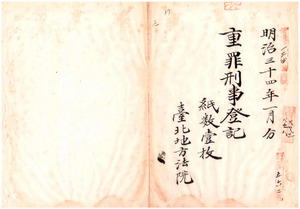 明治三十四年一月分
重罪刑事登記
紙数壹枚
臺北地方法院